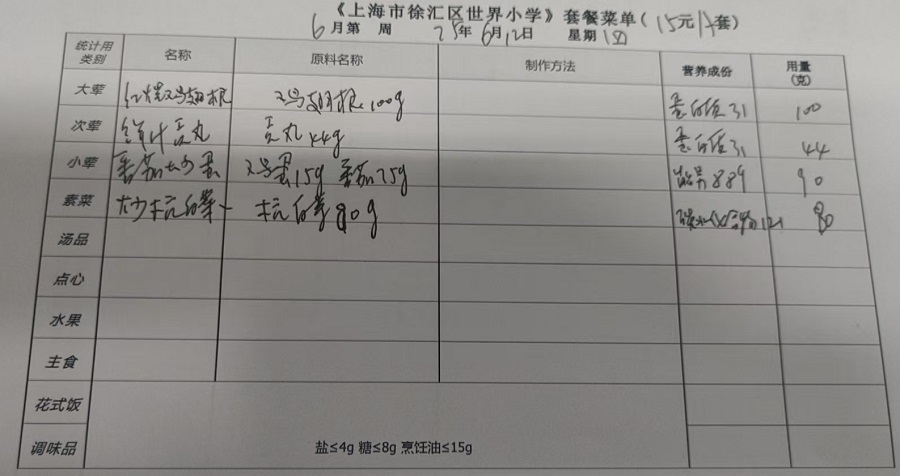 《上海市徐汇区世界小学》套餐菜单(15元/套)
6月第 周 25年6月12日 星期四
统计用类别 名称 原料名称 制作方法 营养成份 用量(克)
大荤 红烧鸡翅根 鸡翅根100g 蛋白质31 100
次荤 贡丸 贡丸44g 蛋白质31 44
小荤 番茄炒蛋 鸡蛋15g 番茄75g 889 90
素菜 炒杭白菜 杭白菜80g 碳水化合物121 80
汤品
点心
水果
主食
花式饭
调味品 盐≤4g 糖≤8g 烹饪油≤15g